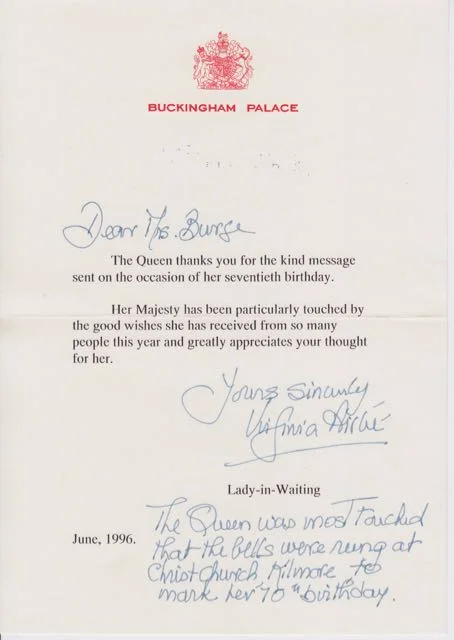 BUCKINGHAM PALACE
Dear Mrs. Burge
The Queen thanks you for the kind message
sent on the occasion of her seventieth birthday.
Her Majesty has been particularly touched by
the good wishes she has received from so many
people this year and greatly appreciates your thought
for her.
Yours sincerely
Virginia Airlie
Lady-in-Waiting
The Queen was most touched
June, 1996.
that the bells were rung at
Christ Church, Kilmore, to
mark her 70th birthday.